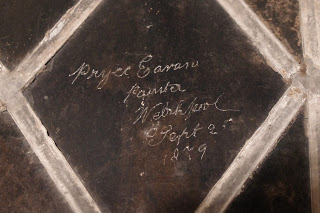 Pryce Evans
Painter
Welshpool
Sept 2
1879